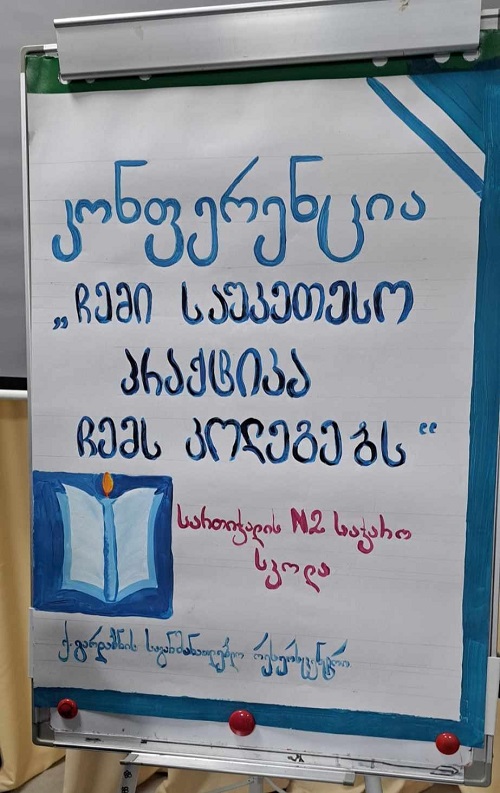 კონფერენცია
„ჩემი საუკეთესო
პრაქტიკა
ჩემს კოლეგებს“
სართიჭალის N2 საჯარო
სკოლა
ქ. გარდაბნის საგანმანათლებლო რესურსცენტრი